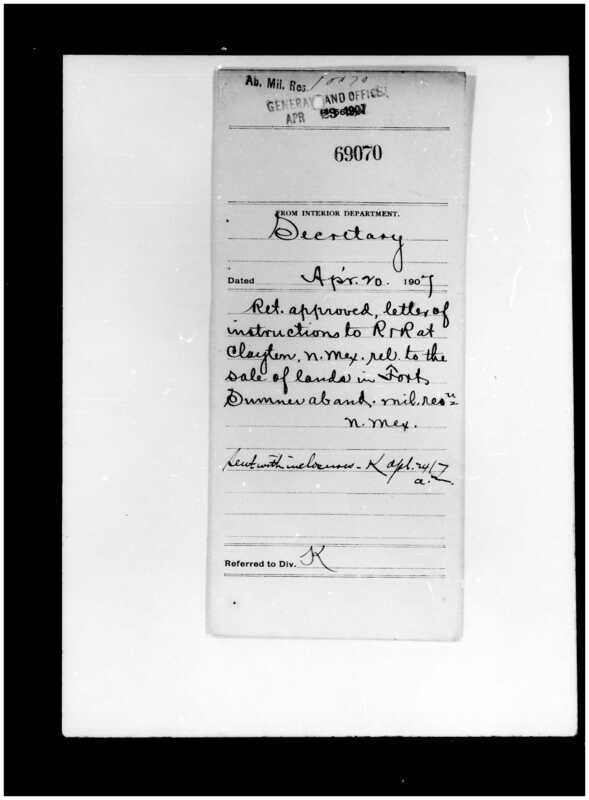 Ab. Mil. Res. 10070
GENERAL LAND OFFICE,
APR 23 1907
69070
FROM INTERIOR DEPARTMENT.
Secretary
Dated Apr. 20. 1907
Ret. approved, letter of
instructions to R & R at
Clayton, N. Mex. rel. to the
sale of lands in Fort
Sumner aband. mil. resn
N. Mex.
Sent with inclosures - K apl. 24/7
Referred to Div. K